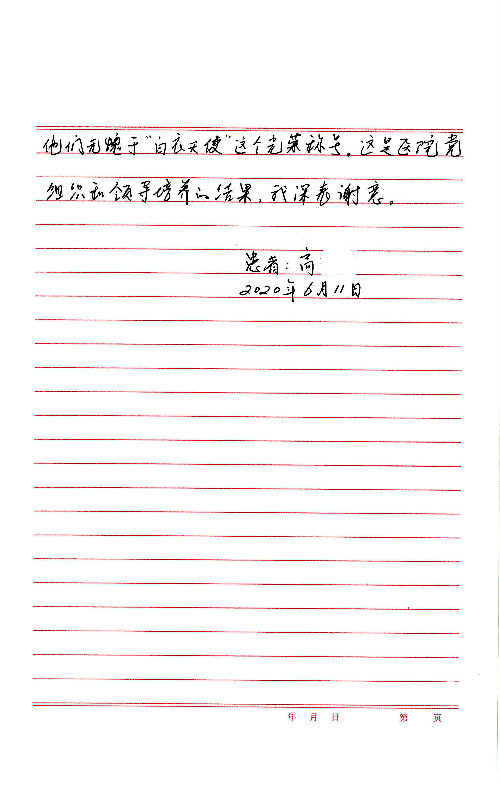 他们无愧于“白衣天使”这个光荣称号。这是医院党
组织和领导培养的结果，我深表谢意。
患者：高
2020年6月11日
年 月 日 第 页